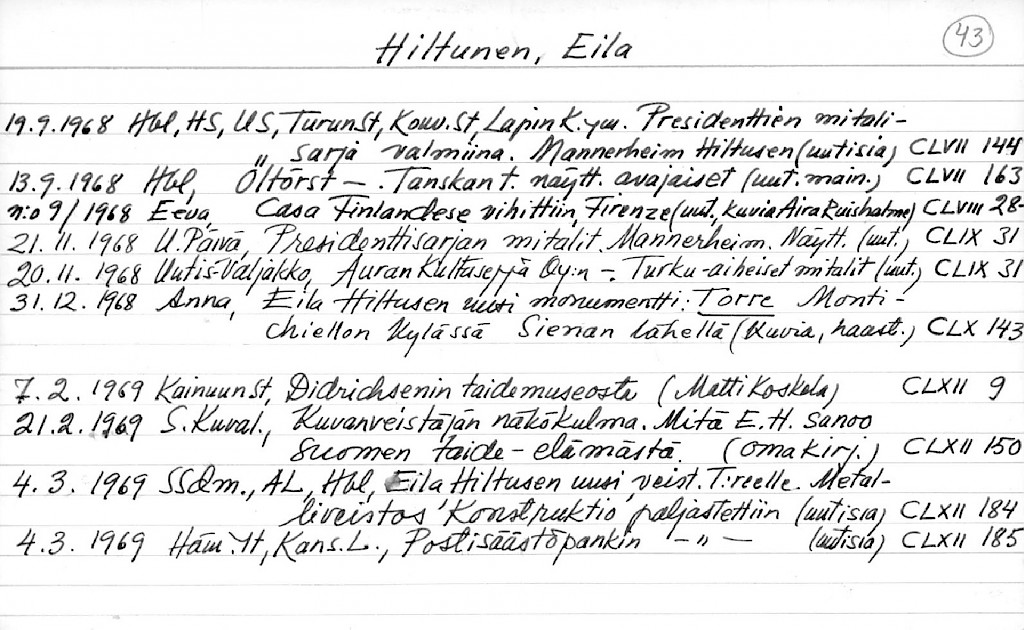 Hiltunen, Eila
43
19.9.1968 Hbl, HS, US, TurunSt, Kouv.St, Lapin K. ym. Presidenttien mitali-
sarja valmiina. Mannerheim Hiltusen (uutisia) CLVII 144
13.9.1968 Hbl, " Öltörst — . Tanskan t. näytt. avajaiset (uut. main.) CLVII 163
n:o 9/1968 Eeva, Casa Finlandese vihittiin, Firenze (uut., kuvia Aira Ruishalme) CLVIII 28-
21.11.1968 U. Päivä, Presidenttisarjan mitalit. Mannerheim. Näytt. (uut.) CLIX 31
20.11.1968 Uutis-Valjakko, Auran Kultaseppä Oy:n – Turku-aiheiset mitalit (uut.) CLIX 31
31.12.1968 Anna, Eila Hiltusen uusi monumentti: Torre Monti-
chiellon kylässä Sienan lähellä (kuvia, haast.) CLX 143
7.2.1969 KainuunSt, Didrichsenin taidemuseosta (Matti Koskela) CLXII 9
21.2.1969 S. Kuval., Kuvanveistäjän näkökulma. Mitä E.H. sanoo
Suomen taide-elämästä. (oma kirj.) CLXII 150
4.3.1969 SSdm., AL, Hbl, Eila Hiltusen uusi veist. T:reelle. Metal-
liveistos 'Konstruktio' paljastettiin (uutisia) CLXII 184
4.3.1969 Kans.L., Postisäästöpankin — " — (uutisia) CLXII 185